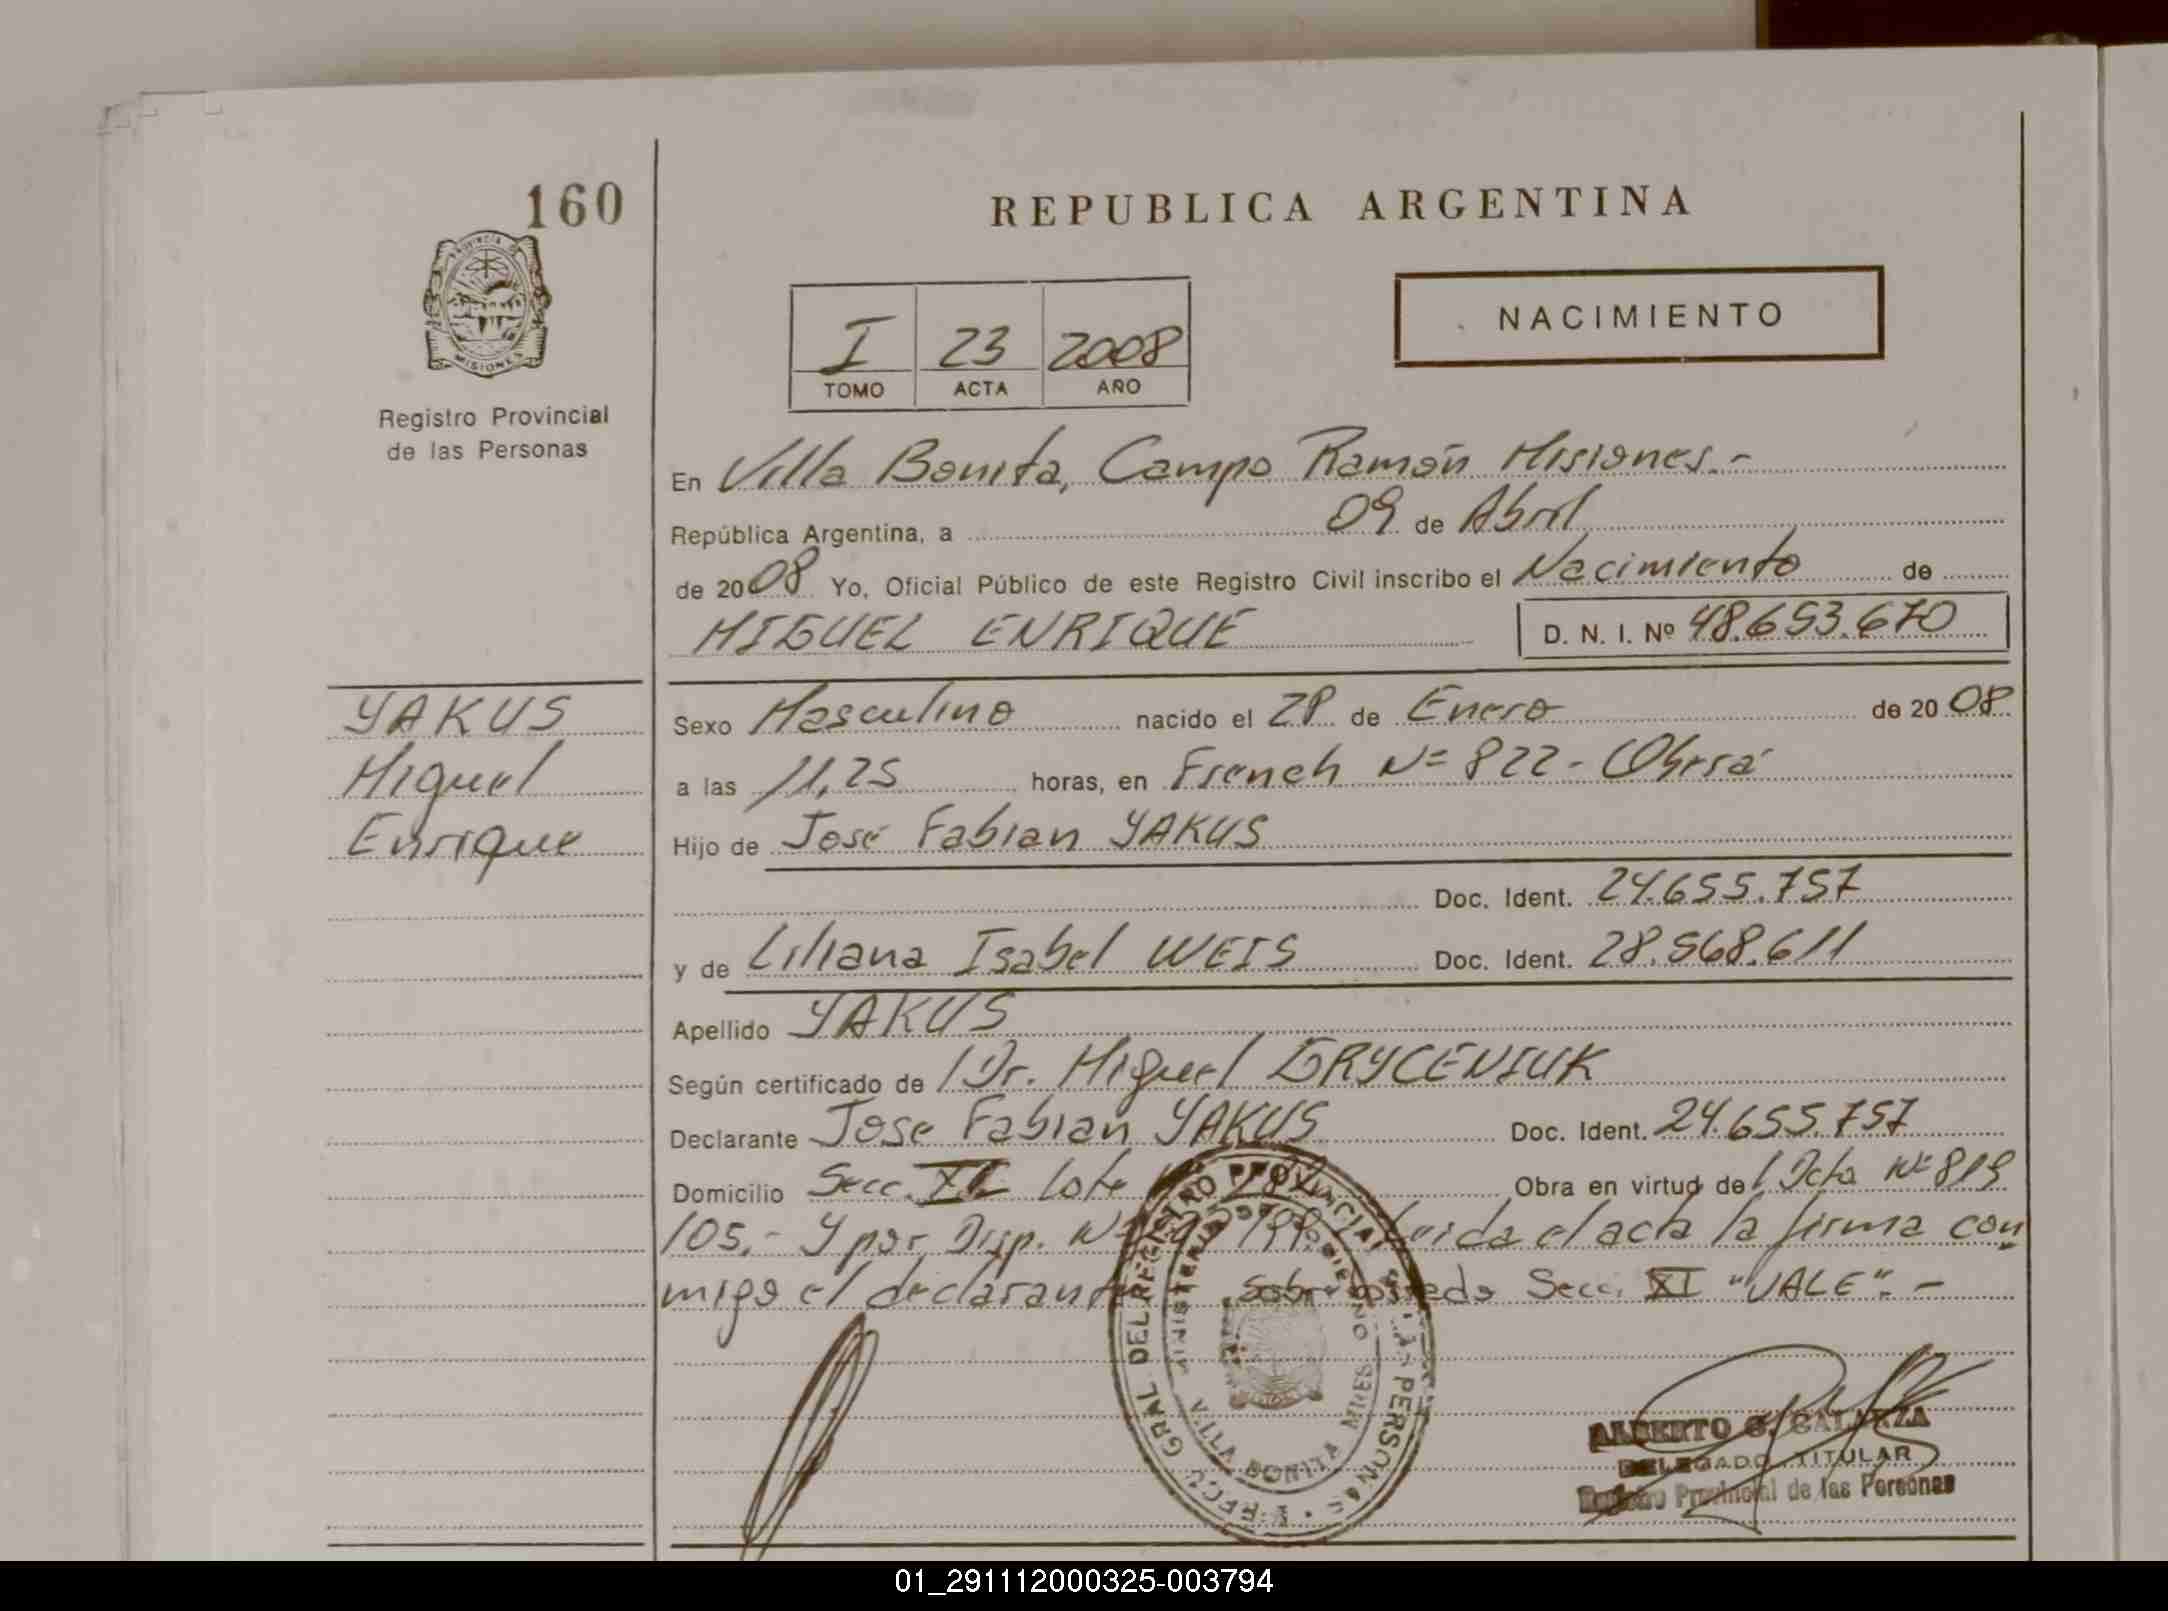 160
PROVINCIA DE
MISIONES
Registro Provincial
de las Personas
REPUBLICA ARGENTINA
I 23 2008
TOMO ACTA AÑO
NACIMIENTO
En Villa Bonita, Campo Ramón Misiones.-
República Argentina, a 09 de Abril
de 2008 Yo, Oficial Público de este Registro Civil inscribo el Nacimiento de
MIGUEL ENRIQUE D. N. I. Nº 48.653.670
YAKUS
Miguel
Enrique
Sexo Masculino nacido el 28 de Enero de 2008
a las 11,25 horas, en French Nº 822 - Oberá
Hijo de José Fabian YAKUS
Doc. Ident. 24.655.757
y de Liliana Isabel WEIS Doc. Ident. 28.568.611
Apellido YAKUS
Según certificado de / Dr. Miguel GRYCENIUK
Declarante Jose Fabian YAKUS Doc. Ident. 24.655.757
Domicilio Secc. XI Lote Obra en virtud de / Dcto Nº 819
105.- Y por Disp. Leida el acta la firma con
migo el declarante Sobreborrado Secc. XI "VALE".-
REGISTRO PROVINCIAL DE LAS PERSONAS
MINISTERIO DE GOBIERNO
VILLA BONITA MNES
ALBERTO G. GALARZA
DELEGADO TITULAR
Registro Provincial de las Personas
01_291112000325-003794